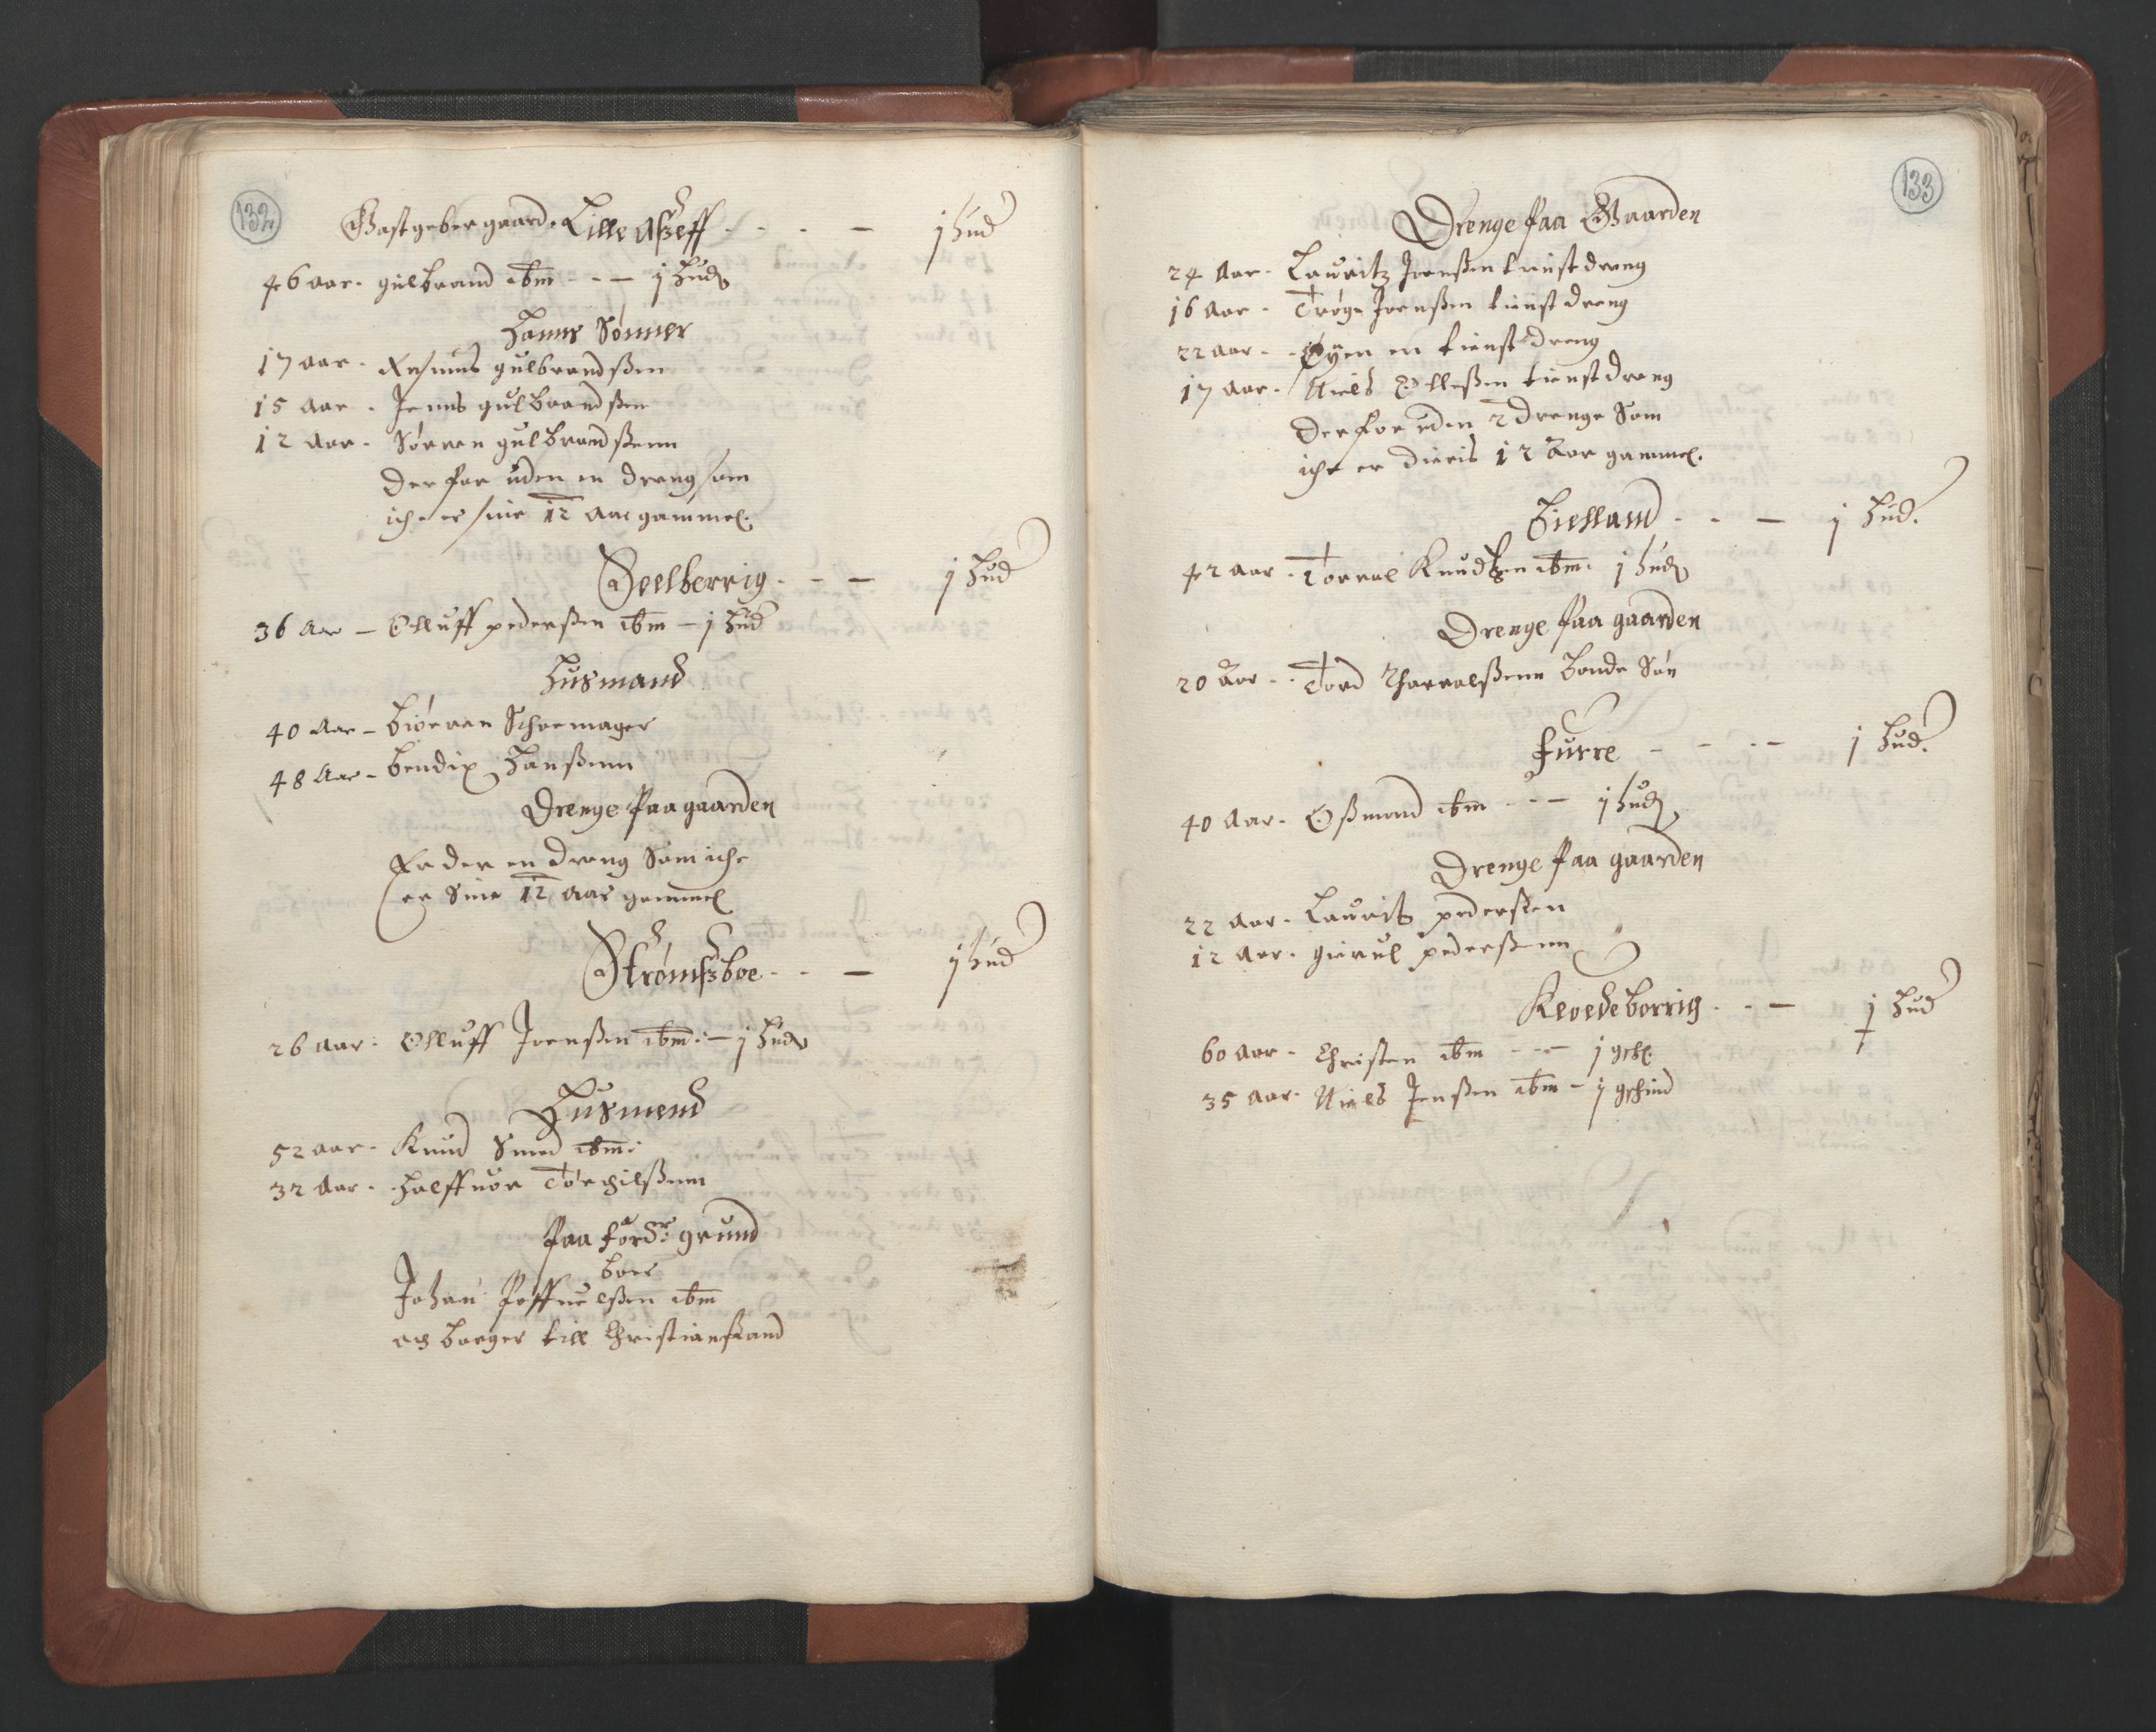 132
Gastgebergaard. Lille Aszeff - - - - j hud
46 aar. gulbrand ibm - - - j hud
Hanns Sønner
17 aar. Rasmus gulbrandßen
15 aar. Jenns gulbrandßen
12 aar. Sørren gulbrandßenn
der for uden en dreng som
iche er sine 12 aar gammel.
Seelberrig - - - j hud
36 Aar - Olluff pederßen ibm - j hud
Husmand
40 Aar - Biørnn Schoemager
48 Aar - Bendix Hanßenn
Drenge paa gaarden
Er der en dreng Som iche
er Sine 12 aar gammel
Strømszboe - - - j hud
26 aar. Olluff Joenßen ibm. - j hud
Husmend
52 aar. Knud Smed ibm.
32 aar. Halffuor Torgilßenn
Paa for.dr grund
boer
Johan Poffuelßen ibm
er borger till Christiansand
133
Drenge paa Gaarden
24 Aar. Lauritz Joenßen tienst dreng
16 Aar. Trøge Joenßen tienst dreng
22 aar. Øyen en tienst dreng
17 aar. Niels Olleßen tienst dreng
Der for uden 2 drenge Som
iche er dieris 12 Aar gammel.
Bieland - - - j hud.
42 aar. Torral Knudßen ibm. j hud
Drenge paa gaarden
20 Aar. Tord Thorralßenn bonde Søn
Furre - - - j hud.
40 Aar. Oßmond ibm - - - j hud
Drenge paa gaarden
22 Aar. Lauritz pederßen
12 Aar. gierul pederßenn
Kevedeborrig - - - j hud
60 Aar. Christen ibm - - - j gch.
35 Aar. Niels Jenßen ibm - j gchind